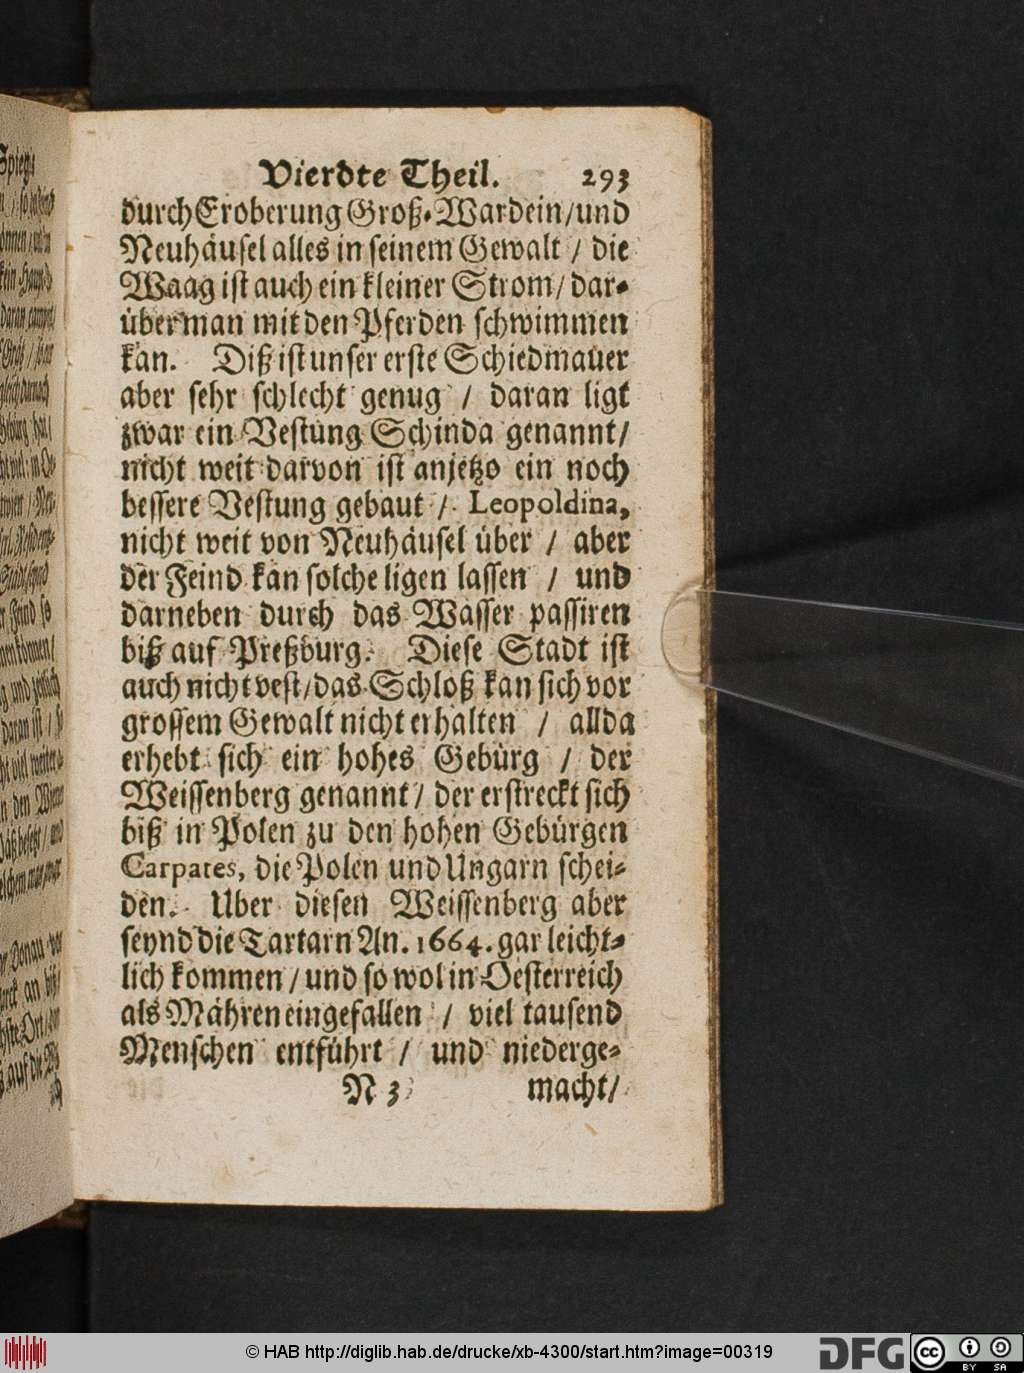 Vierdte Theil. 293
durch Eroberung Groß-Wardein/und
Neuhäusel alles in seinem Gewalt / die
Waag ist auch ein kleiner Strom/ dar-
über man mit den Pferden schwimmen
kan. Diß ist unser erste Schiedmauer
aber sehr schlecht genug / daran ligt
zwar ein Vestung Schinda genannt/
nicht weit darvon ist anjetzo ein noch
bessere Vestung gebaut / Leopoldina,
nicht weit von Neuhäusel über / aber
der Feind kan solche ligen lassen / und
darneben durch das Wasser passiren
biß auf Preßburg. Diese Stadt ist
auch nicht vest/das Schloß kan sich vor
grossem Gewalt nicht erhalten / allda
erhebt sich ein hohes Gebürg / der
Weissenberg genannt/ der erstreckt sich
biß in Polen zu den hohen Gebürgen
Carpates, die Polen und Ungarn schei-
den. Uber diesen Weissenberg aber
seynd die Tartarn An. 1664. gar leicht-
lich kommen/und so wol in Oesterreich
als Mähren eingefallen / viel tausend
Menschen entführt / und niederge-
N 3 macht/
© HAB http://diglib.hab.de/drucke/xb-4300/start.htm?image=00319
DFG
cc BY SA